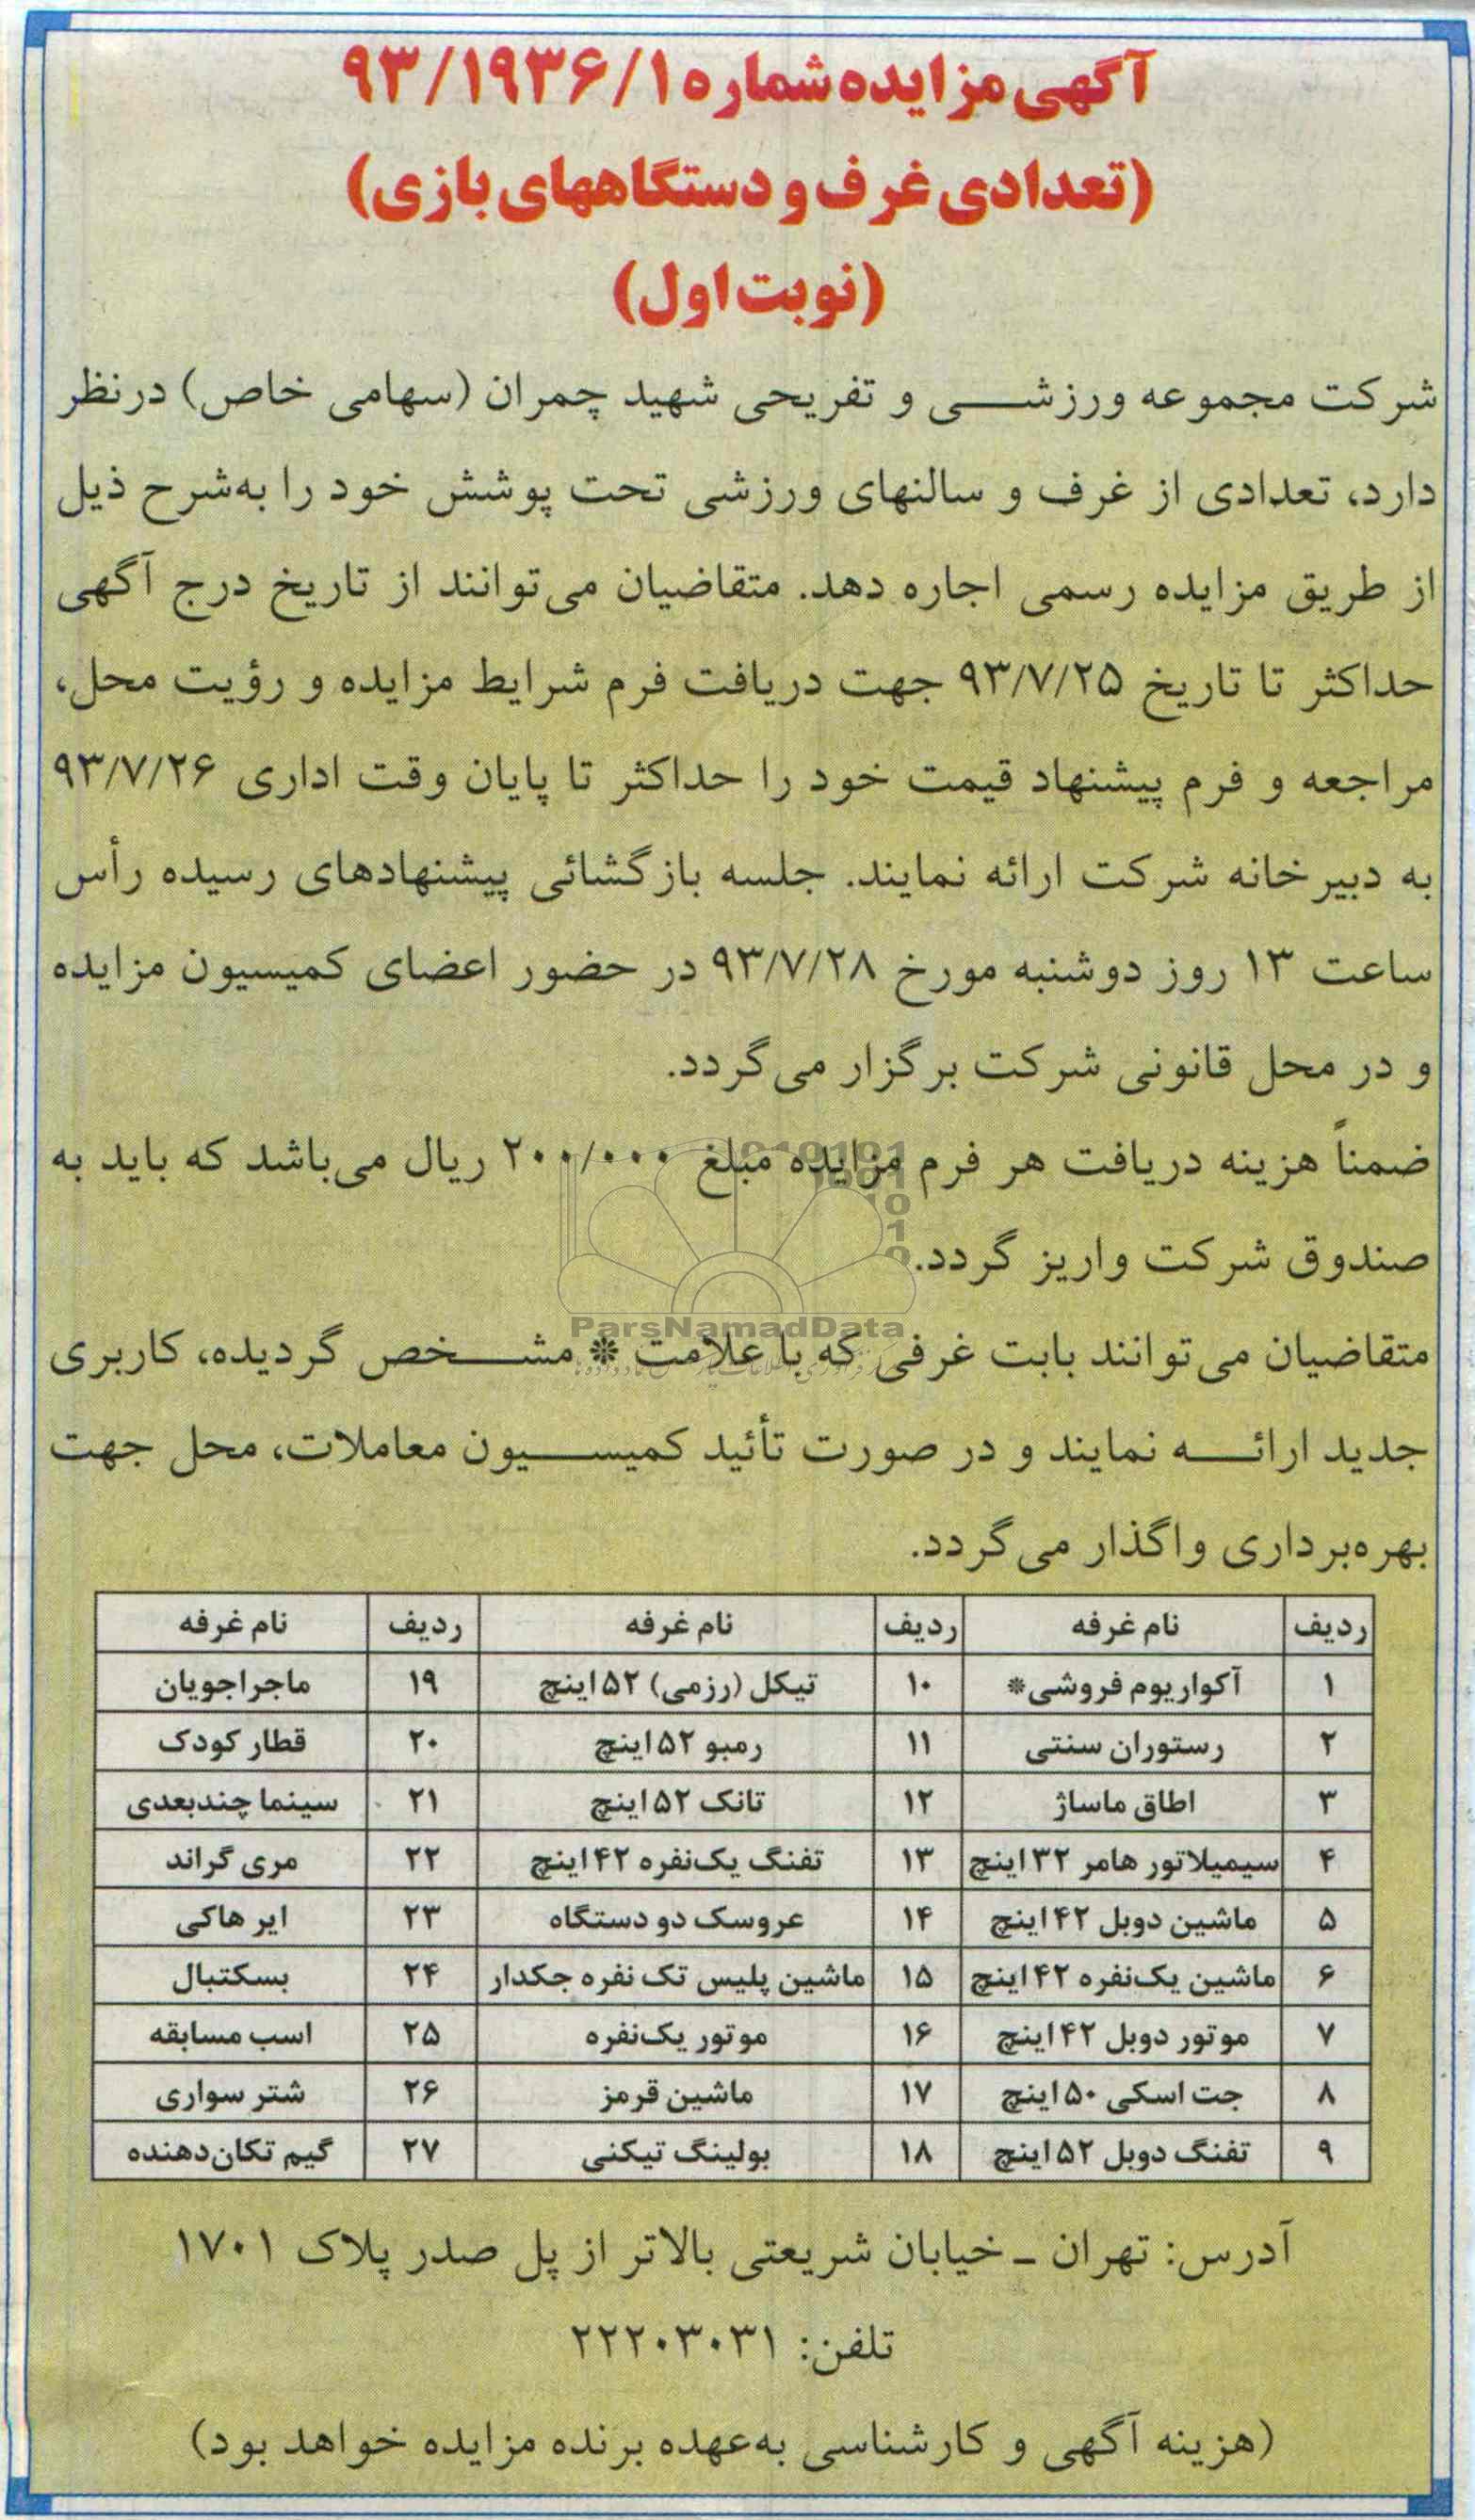 آگهی مزایده شماره ۹۳/۱۹۳۶/۱
(تعدادی غرف و دستگاههای بازی)
(نوبت اول)
شرکت مجموعه ورزشی و تفریحی شهید چمران (سهامی خاص) درنظر
دارد، تعدادی از غرف و سالنهای ورزشی تحت پوشش خود را به‌شرح ذیل
از طریق مزایده رسمی اجاره دهد. متقاضیان می‌توانند از تاریخ درج آگهی
حداکثر تا تاریخ ۹۳/۷/۲۵ جهت دریافت فرم شرایط مزایده و رؤیت محل،
مراجعه و فرم پیشنهاد قیمت خود را حداکثر تا پایان وقت اداری ۹۳/۷/۲۶
به دبیرخانه شرکت ارائه نمایند. جلسه بازگشائی پیشنهادهای رسیده رأس
ساعت ۱۳ روز دوشنبه مورخ ۹۳/۷/۲۸ در حضور اعضای کمیسیون مزایده
و در محل قانونی شرکت برگزار می‌گردد.
ضمناً هزینه دریافت هر فرم مزایده مبلغ ۲۰۰/۰۰۰ ریال می‌باشد که باید به
صندوق شرکت واریز گردد.
ParsNamadData
متقاضیان می‌توانند بابت غرفی که با علامت * مشخص گردیده، کاربری
جدید ارائه نمایند و در صورت تأئید کمیسیون معاملات، محل جهت
بهره‌برداری واگذار می‌گردد.
ردیف نام غرفه ردیف نام غرفه ردیف نام غرفه
۱ آکواریوم فروشی* ۱۰ تیکل (رزمی) ۵۲ اینچ ۱۹ ماجراجویان
۲ رستوران سنتی ۱۱ رمبو ۵۲ اینچ ۲۰ قطار کودک
۳ اطاق ماساژ ۱۲ تانک ۵۲ اینچ ۲۱ سینما چندبعدی
۴ سیمیلاتور هامر ۳۲ اینچ ۱۳ تفنگ یک‌نفره ۴۲ اینچ ۲۲ مری گراند
۵ ماشین دوبل ۴۲ اینچ ۱۴ عروسک دو دستگاه ۲۳ ایر هاکی
۶ ماشین یک‌نفره ۴۲ اینچ ۱۵ ماشین پلیس تک نفره جکدار ۲۴ بسکتبال
۷ موتور دوبل ۴۲ اینچ ۱۶ موتور یک‌نفره ۲۵ اسب مسابقه
۸ جت اسکی ۵۰ اینچ ۱۷ ماشین قرمز ۲۶ شتر سواری
۹ تفنگ دوبل ۵۲ اینچ ۱۸ بولینگ تیکنی ۲۷ گیم تکان‌دهنده
آدرس: تهران ـ خیابان شریعتی بالاتر از پل صدر پلاک ۱۷۰۱
تلفن: ۲۲۲۰۳۰۳۱
(هزینه آگهی و کارشناسی به‌عهده برنده مزایده خواهد بود)